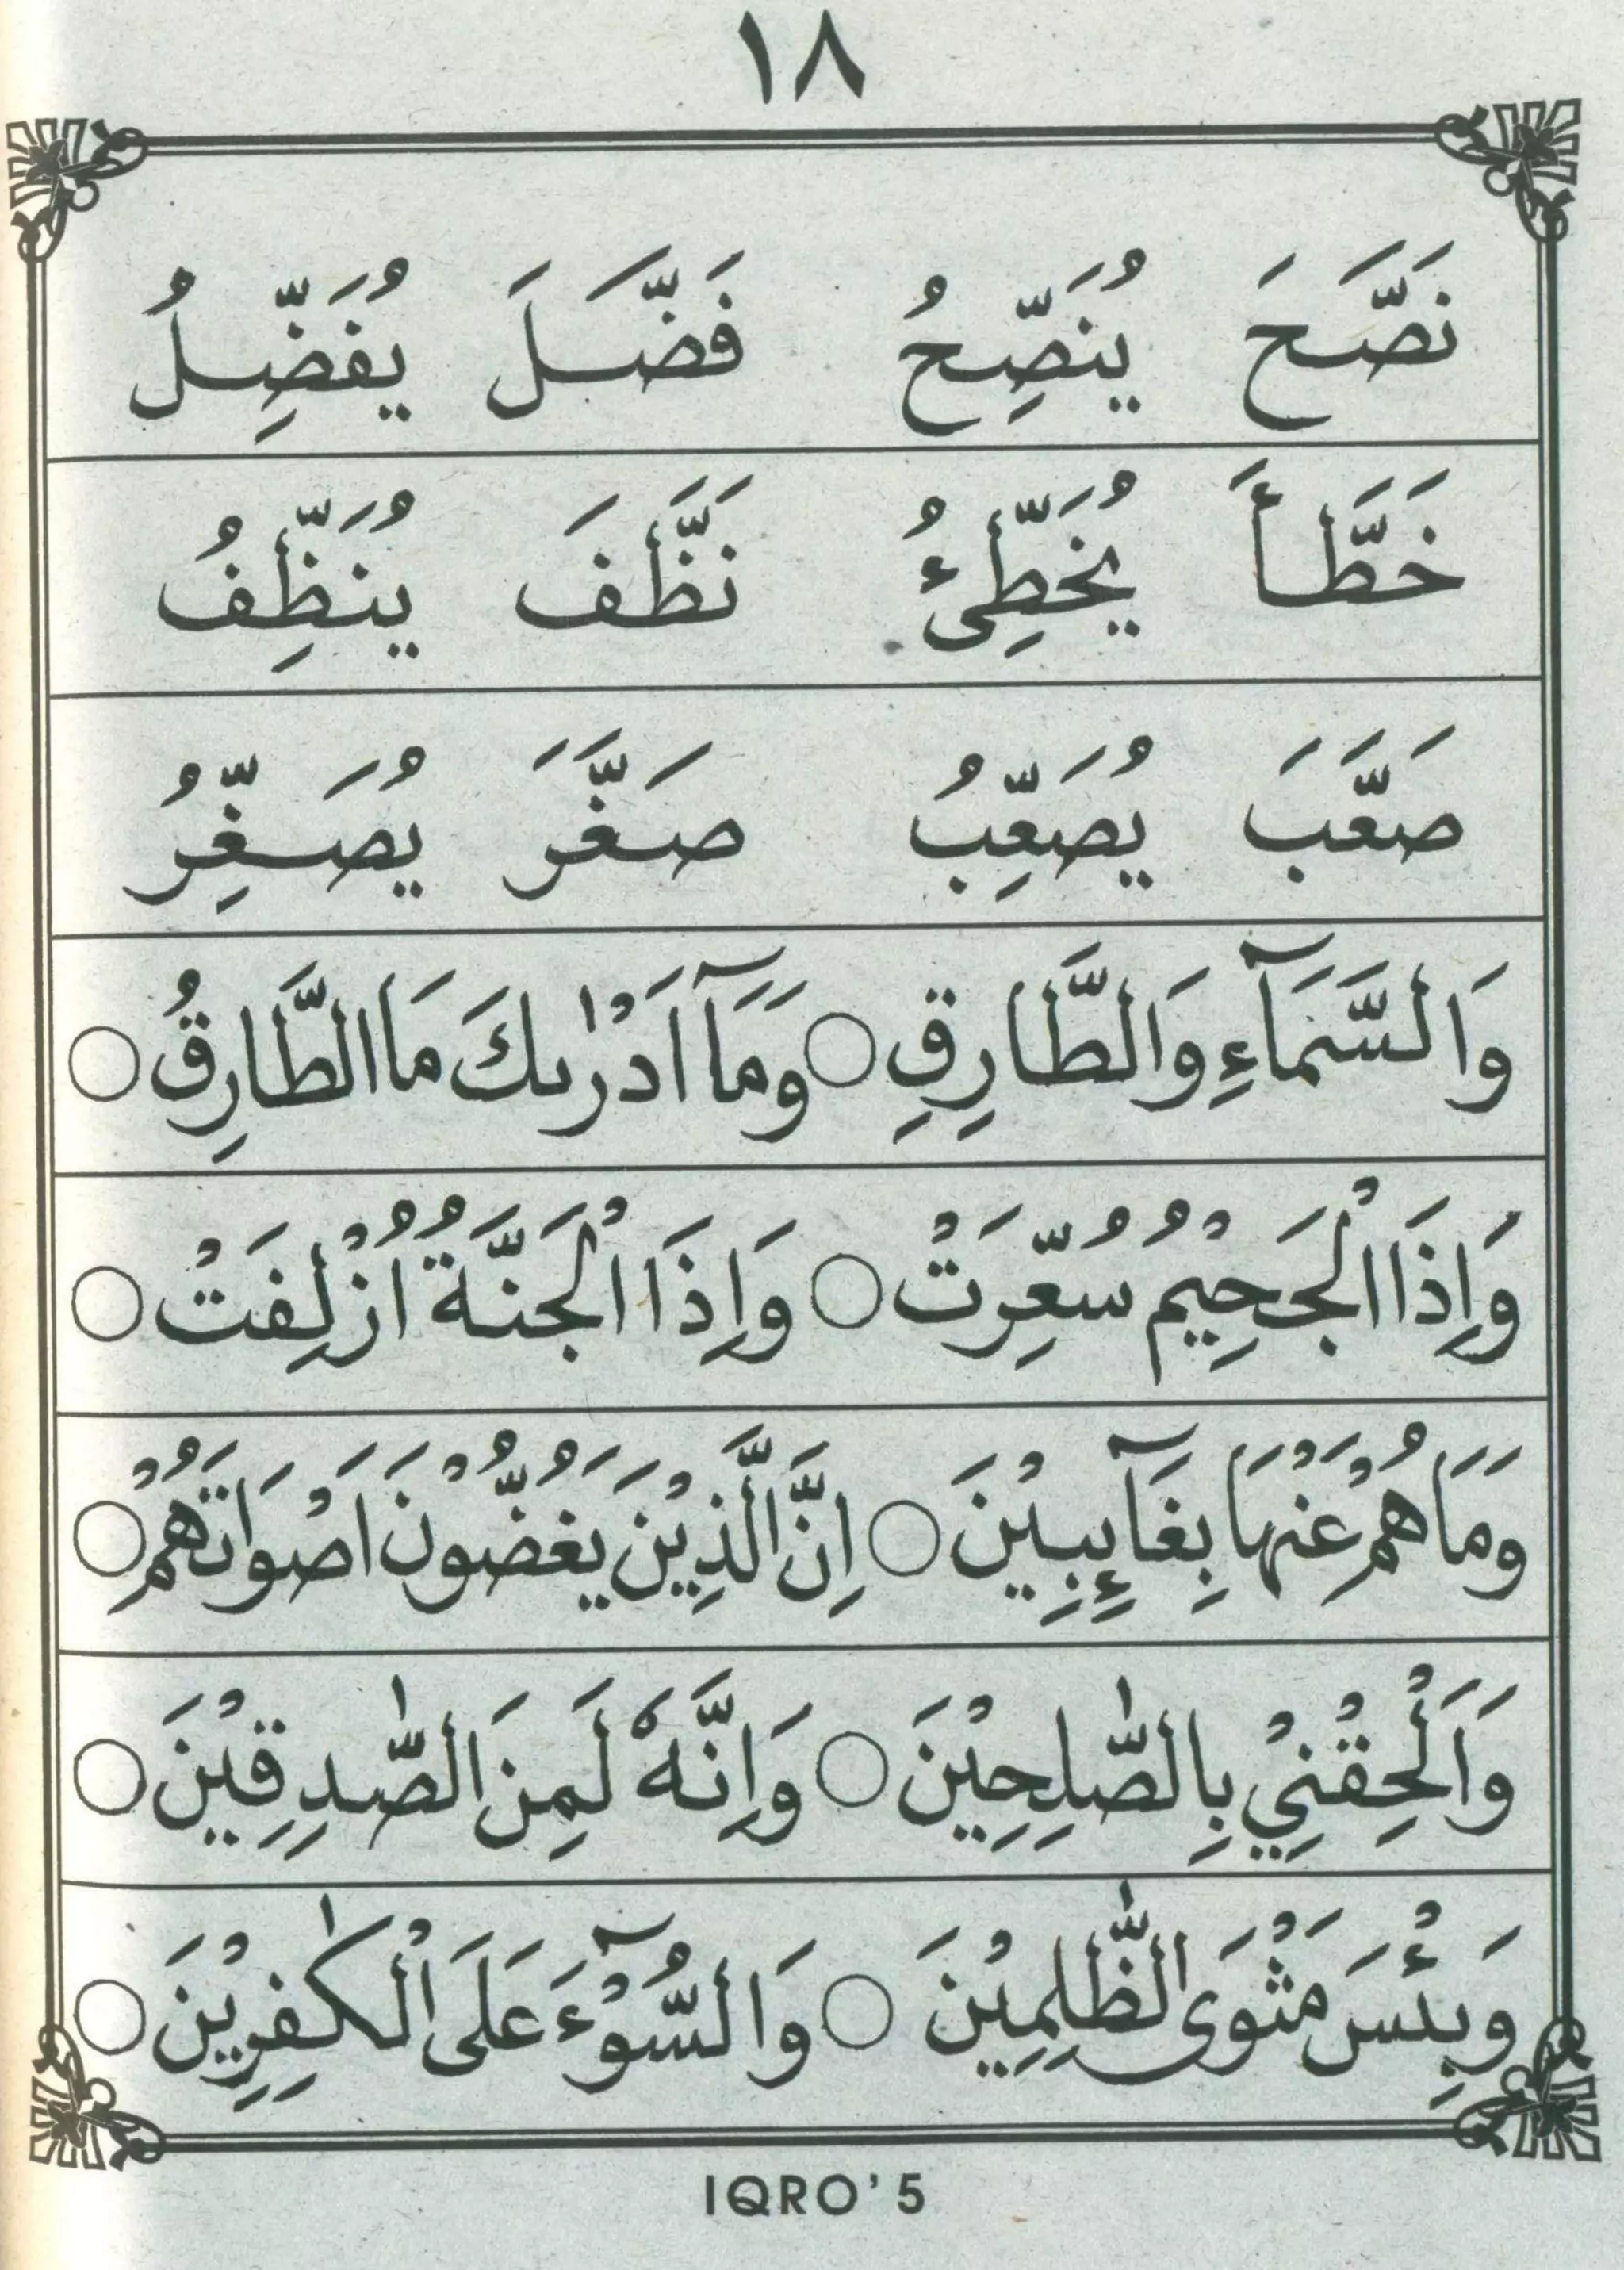 ١٨
نَصَّحَ يُنَصِّحُ فَضَّلَ يُفَضِّلُ
خَطَّأَ يُخَطِّئُ نَظَّفَ يُنَظِّفُ
صَعَّبَ يُصَعِّبُ صَغَّرَ يُصَغِّرُ
وَالسَّمَآءِ وَالطَّارِقِ ○ وَمَآ اَدْرٰىكَ مَا الطَّارِقُ ○
وَاِذَا الْجَحِيْمُ سُعِّرَتْ ○ وَاِذَا الْجَنَّةُ اُزْلِفَتْ ○
وَمَا هُمْ عَنْهَا بِغَآئِبِيْنَ ○ اِنَّ الَّذِيْنَ يَغُضُّوْنَ اَصْوَاتَهُمْ ○
وَاَلْحِقْنِيْ بِالصّٰلِحِيْنَ ○ وَاِنَّهٗ لَمِنَ الصّٰدِقِيْنَ ○
وَبِئْسَ مَثْوَى الظّٰلِمِيْنَ ○ وَالسُّوْٓءَ عَلَى الْكٰفِرِيْنَ ○
IQRO' 5